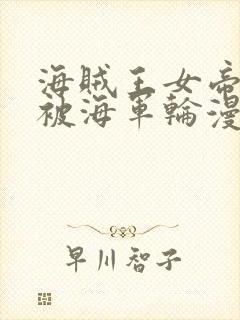 海贼王女帝
被海軍輪漫
早川智子